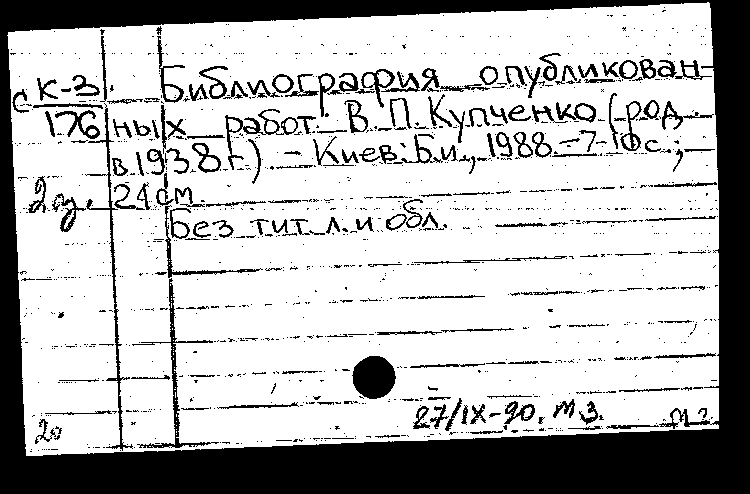 с К-3 Библиография опубликован-
176 ных работ В. П. Купченко (род.
в 1938 г.) - Киев: Б.и., 1988. - 7-10 с.;
24 см.
Без тит. л. и обл.
27/IX-90. М.З.
20